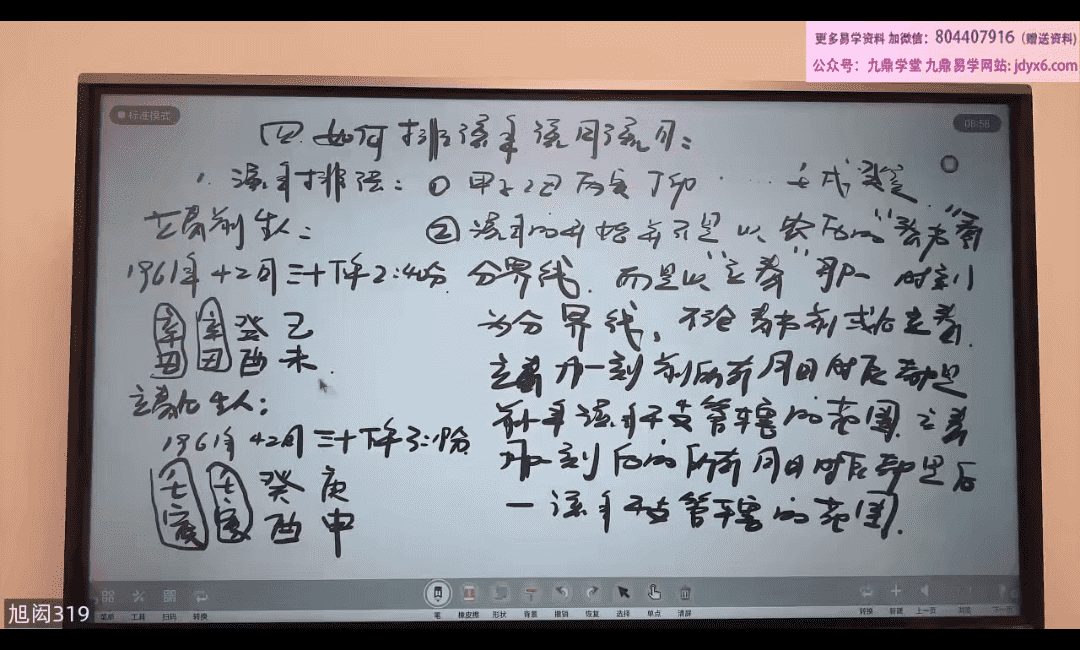 更多易学资料 加微信：804407916（赠送资料）
公众号：九鼎学堂 九鼎易学网站: jdyx6.com
标准模式
08:58
四.如何排流年流月流日：
1.流年排法：① 甲子 乙丑 丙寅 丁卯 …… 壬戌 癸亥
立春前生人：
② 流年的开始并不是以农历的“春节”为
1961年12月三十下午2:40分
分界线，而是以“立春”那一时刻
辛 辛 癸 乙
丑 丑 酉 未
为分界线，不论春节前或后立春.
立春那一刻前所有月日时辰都是
前一年流年干支管辖的范围.立春
那一刻后的所有月日时辰都是后
一流年干支管辖的范围.
立春后生人：
1961年12月三十下午3:18分
壬 壬 癸 庚
寅 寅 酉 申
菜单
工具
扫码
转换
笔
橡皮擦
形状
背景
撤销
恢复
选择
单点
清屏
转换
上一页
浏览
下一页
旭闳319